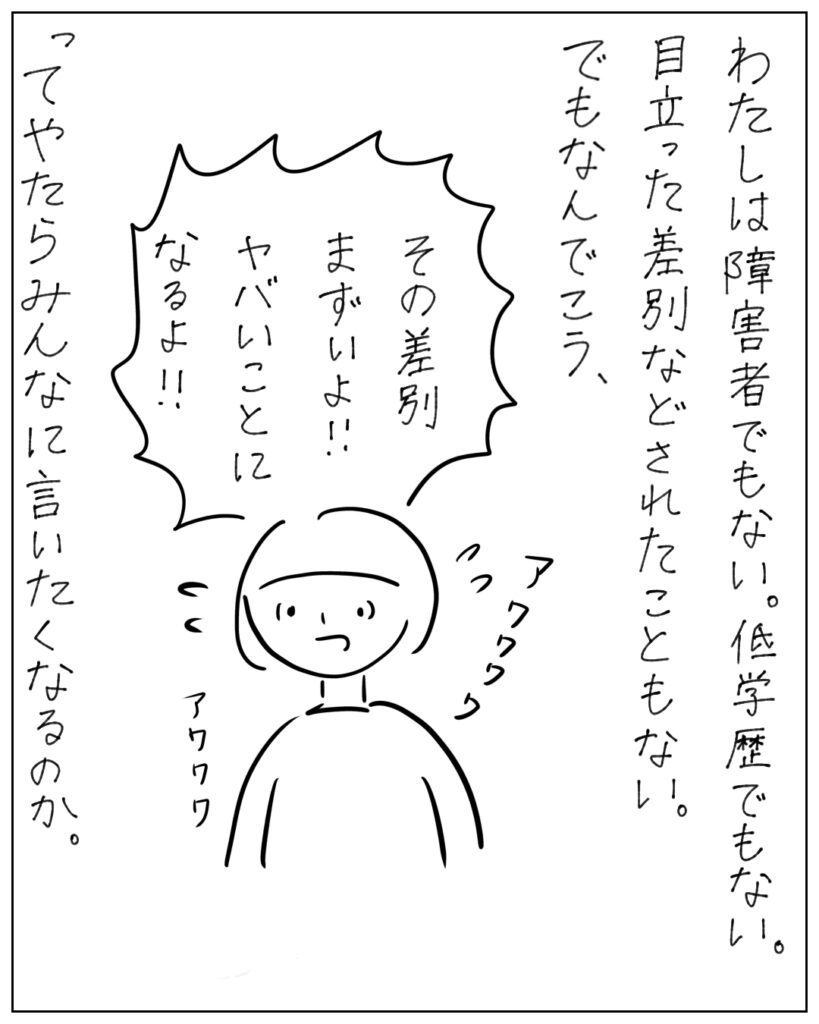 わたしは障害者でもない。低学歴でもない。
目立った差別などされたこともない。
でもなんでこう、
その差別
まずいよ!!
ヤバいことに
なるよ!!
アワワワワ
アワワワ
ってやたらみんなに言いたくなるのか。